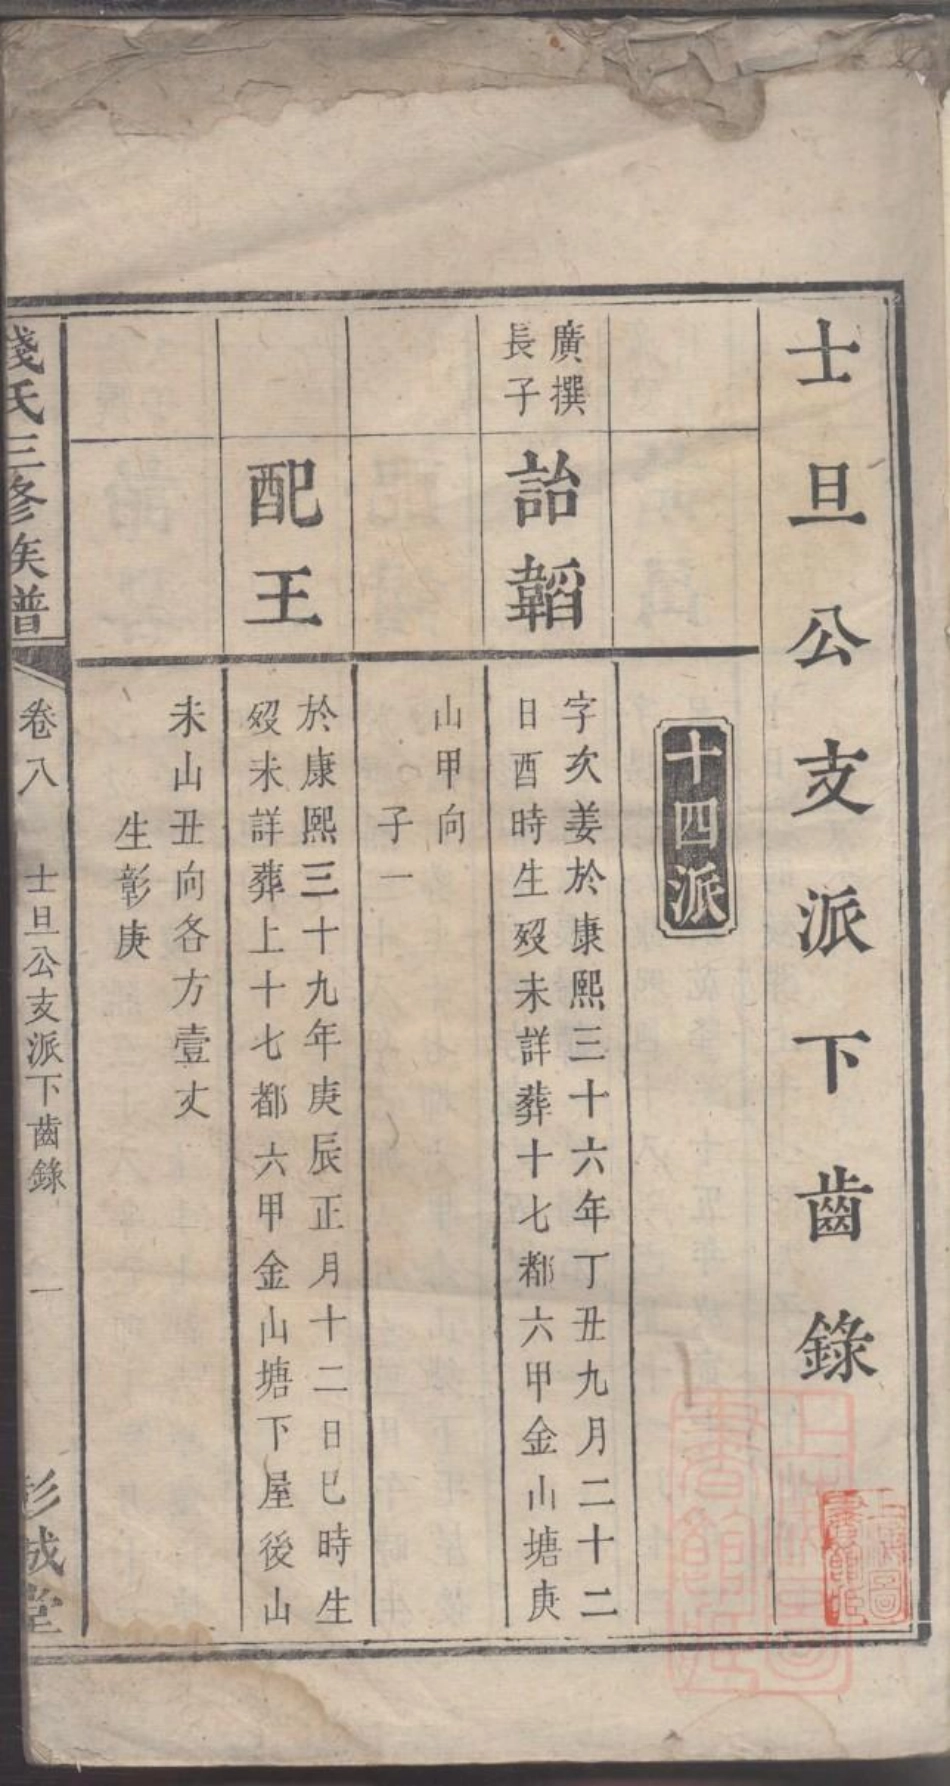 士旦公支派下齒錄
十四派
廣撰
長子
詒韜
字次姜於康熙三十六年丁丑九月二十二
日酉時生歿未詳葬十七都六甲金山塘庚
山甲向
子一
配王
於康熙三十九年庚辰正月十二日巳時生
歿未詳葬上十七都六甲金山塘下屋後山
未山丑向各方壹丈
生彰庚
錢氏三修族譜
卷八
士旦公支派下齒錄
一
彭城堂
上海圖
書館藏